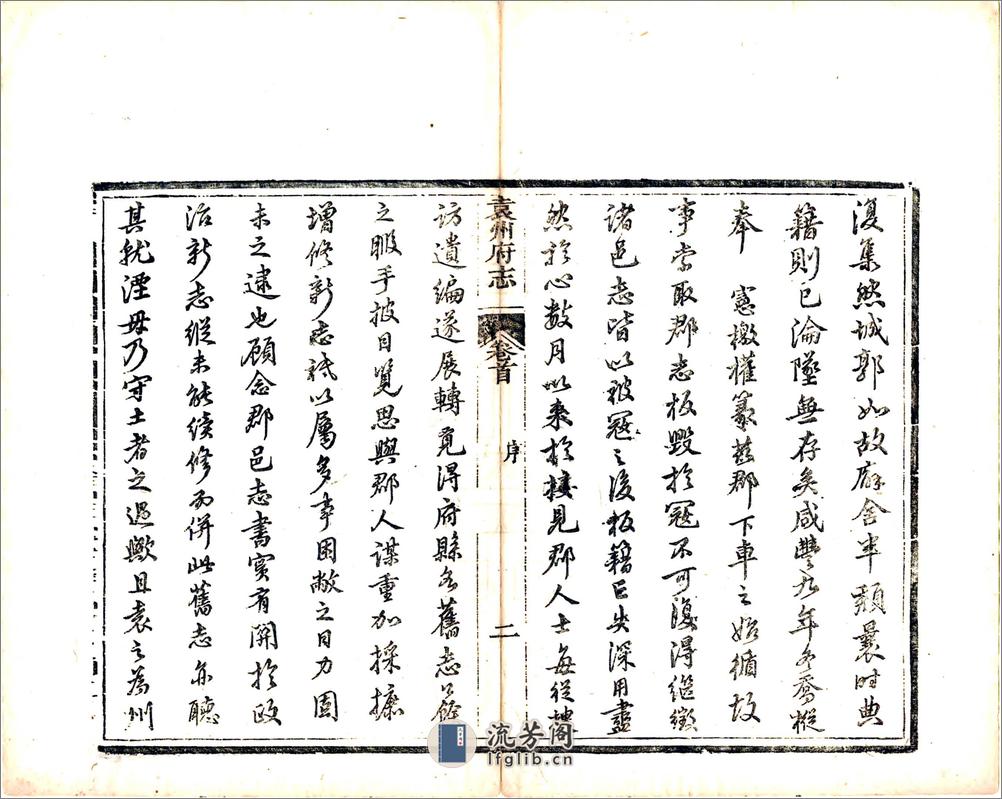 復集然城郭如故廨舍半頹曩時典
籍則已淪墜無存矣咸豐九年冬喬樅
奉 憲檄權篆茲郡下車之始循故
事索取郡志板毀於寇不可復得繼徵
諸邑志皆以被寇之後板籍已失深用盡
然於心數月以來於接見郡人士每從
袁州府志 卷首 序 二
訪遺編遂展轉覓得府縣各舊志餘
之暇手披目覽思與郡人謀重加採摭
增修新志祗以屬多事困敝之日力固
未之逮也顧念郡邑志書實有關於政
治新志縱未能續修而併此舊志亦聽
其就湮毋乃守土者之過歟且袁之為州
流芳阁
lfglib.cn